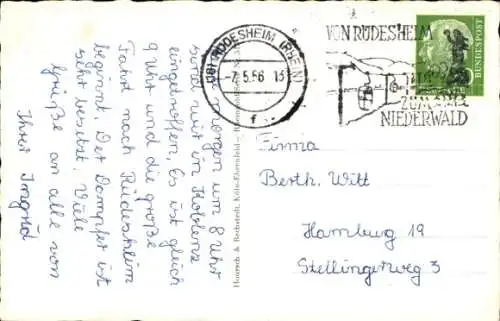 Heute morgen um 8 Uhr
sind wir in Koblenz
eingetroffen. Es ist gleich
9 Uhr und die große
Fahrt nach Rüdesheim
beginnt. Der Dampfer ist
sehr besetzt. Viele
Grüße an alle von
Ihrer Ingrid
RÜDESHEIM (RHEIN)
-7.5.56
f
VON RÜDESHEIM
ZUM
NIEDERWALD
BUNDESPOST
Hourch & Bechstedt, Köln-Ehrenfeld
Firma
Berth. Witt
Hamburg 19
Stellingerweg 3